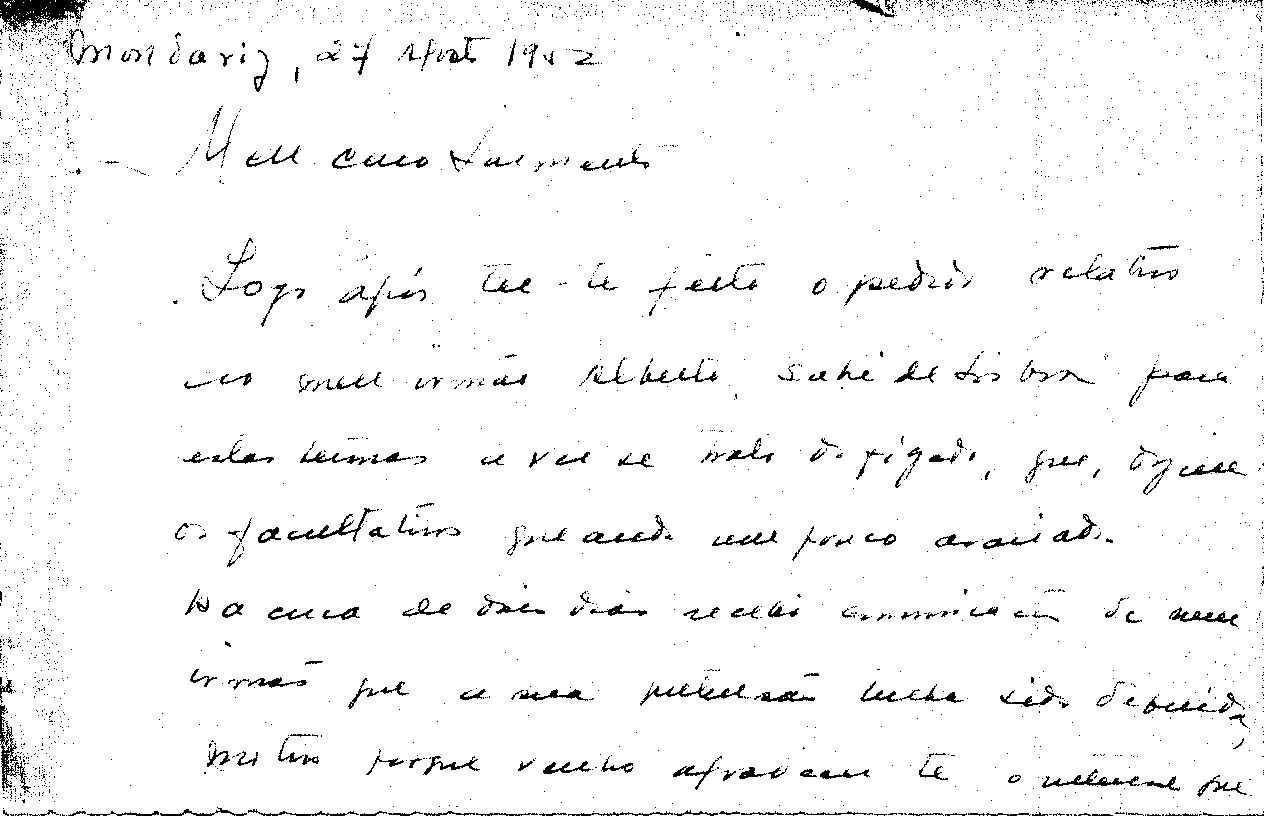 Mondariz, 27 Agosto 1952
Meu caro Sarmento
Logo após ter-te feito o pedido relativo
ao meu irmão Alberto, sahi de Lisboa para
estas termas a ver se trato do fígado, que, dizem
os facultativos que anda um pouco avariado.
Ha cerca de dois dias recebi comunicação de meu
irmão que a sua pretensão tinha sido deferida,
motivo porque venho agradecer-te o interesse que